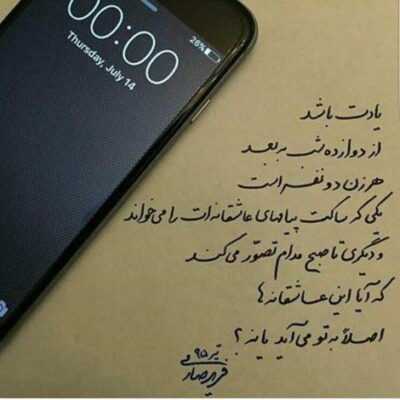 00:00
26%
Thursday, July 14
یادت باشد
از دوازده شب به بعد
هر زن دو نفر است
یکی که ساکت پیامهای عاشقانه‌ات را می‌خواند
و دیگری تا صبح مدام تصوّر می‌کند
که آیا این عاشقانه‌ها
اصلاً به تو می‌آید یا نه؟
تیر ۹۵